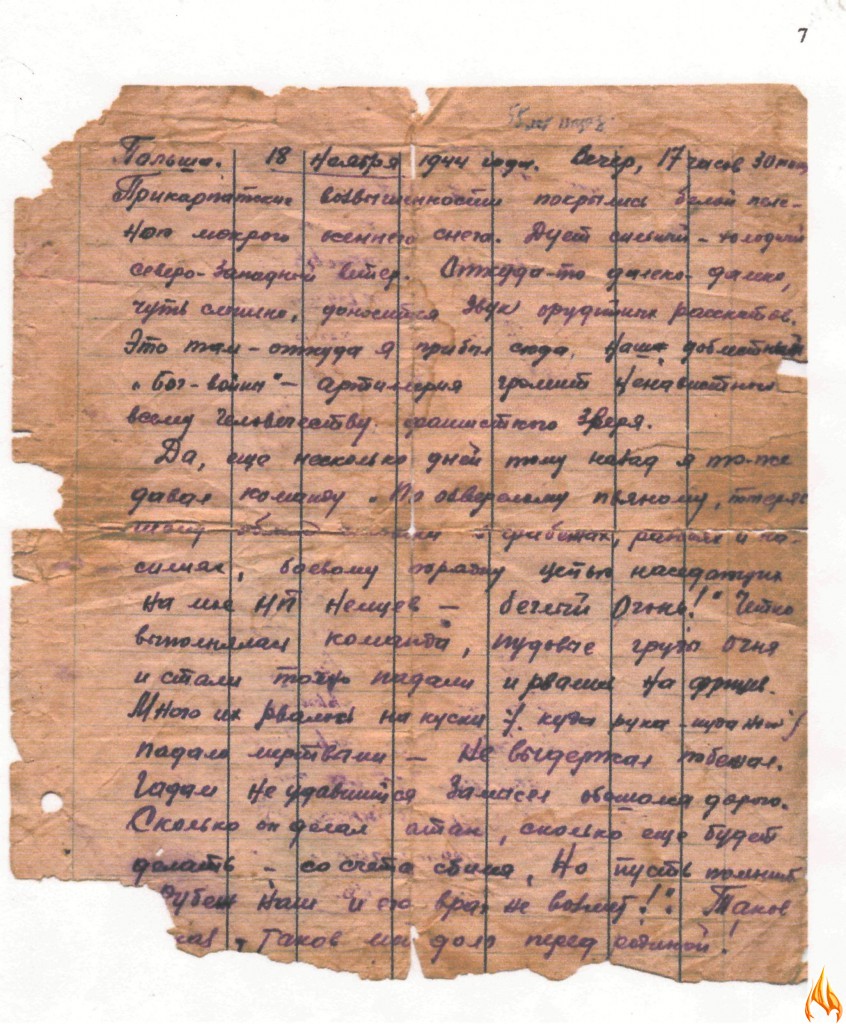 7
Польша. 18 Ноября 1944 года. Вечер, 17 часов 30 мин
Прикарпатские возвышенности покрылись белой пеле-
ной мокрого осеннего снега. Дует сильный - холодный
северо-западный ветер. Откуда-то далеко-далеко,
чуть слышно, доносится звук орудийных раскатов.
Это там - откуда я прибыл сюда, наша доблестная
"Бог-войны" - артиллерия громит ненавистного
всему человечеству фашисткого зверя.
Да, еще несколько дней тому назад я то-же
давал команду "По озверелому пьяному, потеряв
шему грабежах, и на-
силиях, боевому порядку цепью наседающих
на мое НП немцев - беглый огонь!" Четко
выполнялась команда, пудовые грузы огня
и стали точно падали и рвались на фрицев.
Много их рвалось на куски /. куда рука - куда нога /
падало мертвыми - не выдержал побежал.
Гадам не удавшийся замысел обошолся дорого.
Сколько он делал атак, сколько еще будет
делать - со счета сбился, Но пусть помнит
Рубеж наш и его враг не возмет!". Таков
, Таков мой долг перед родиной!